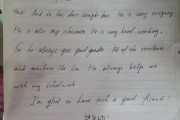 fair. And in his door
He is very
He is also my classmate. He is very hard-working.
So he always gets good grades. All of the teachers
and students like him. He always helps me
with my schoolwork.
I'm glad to have such a good friend!